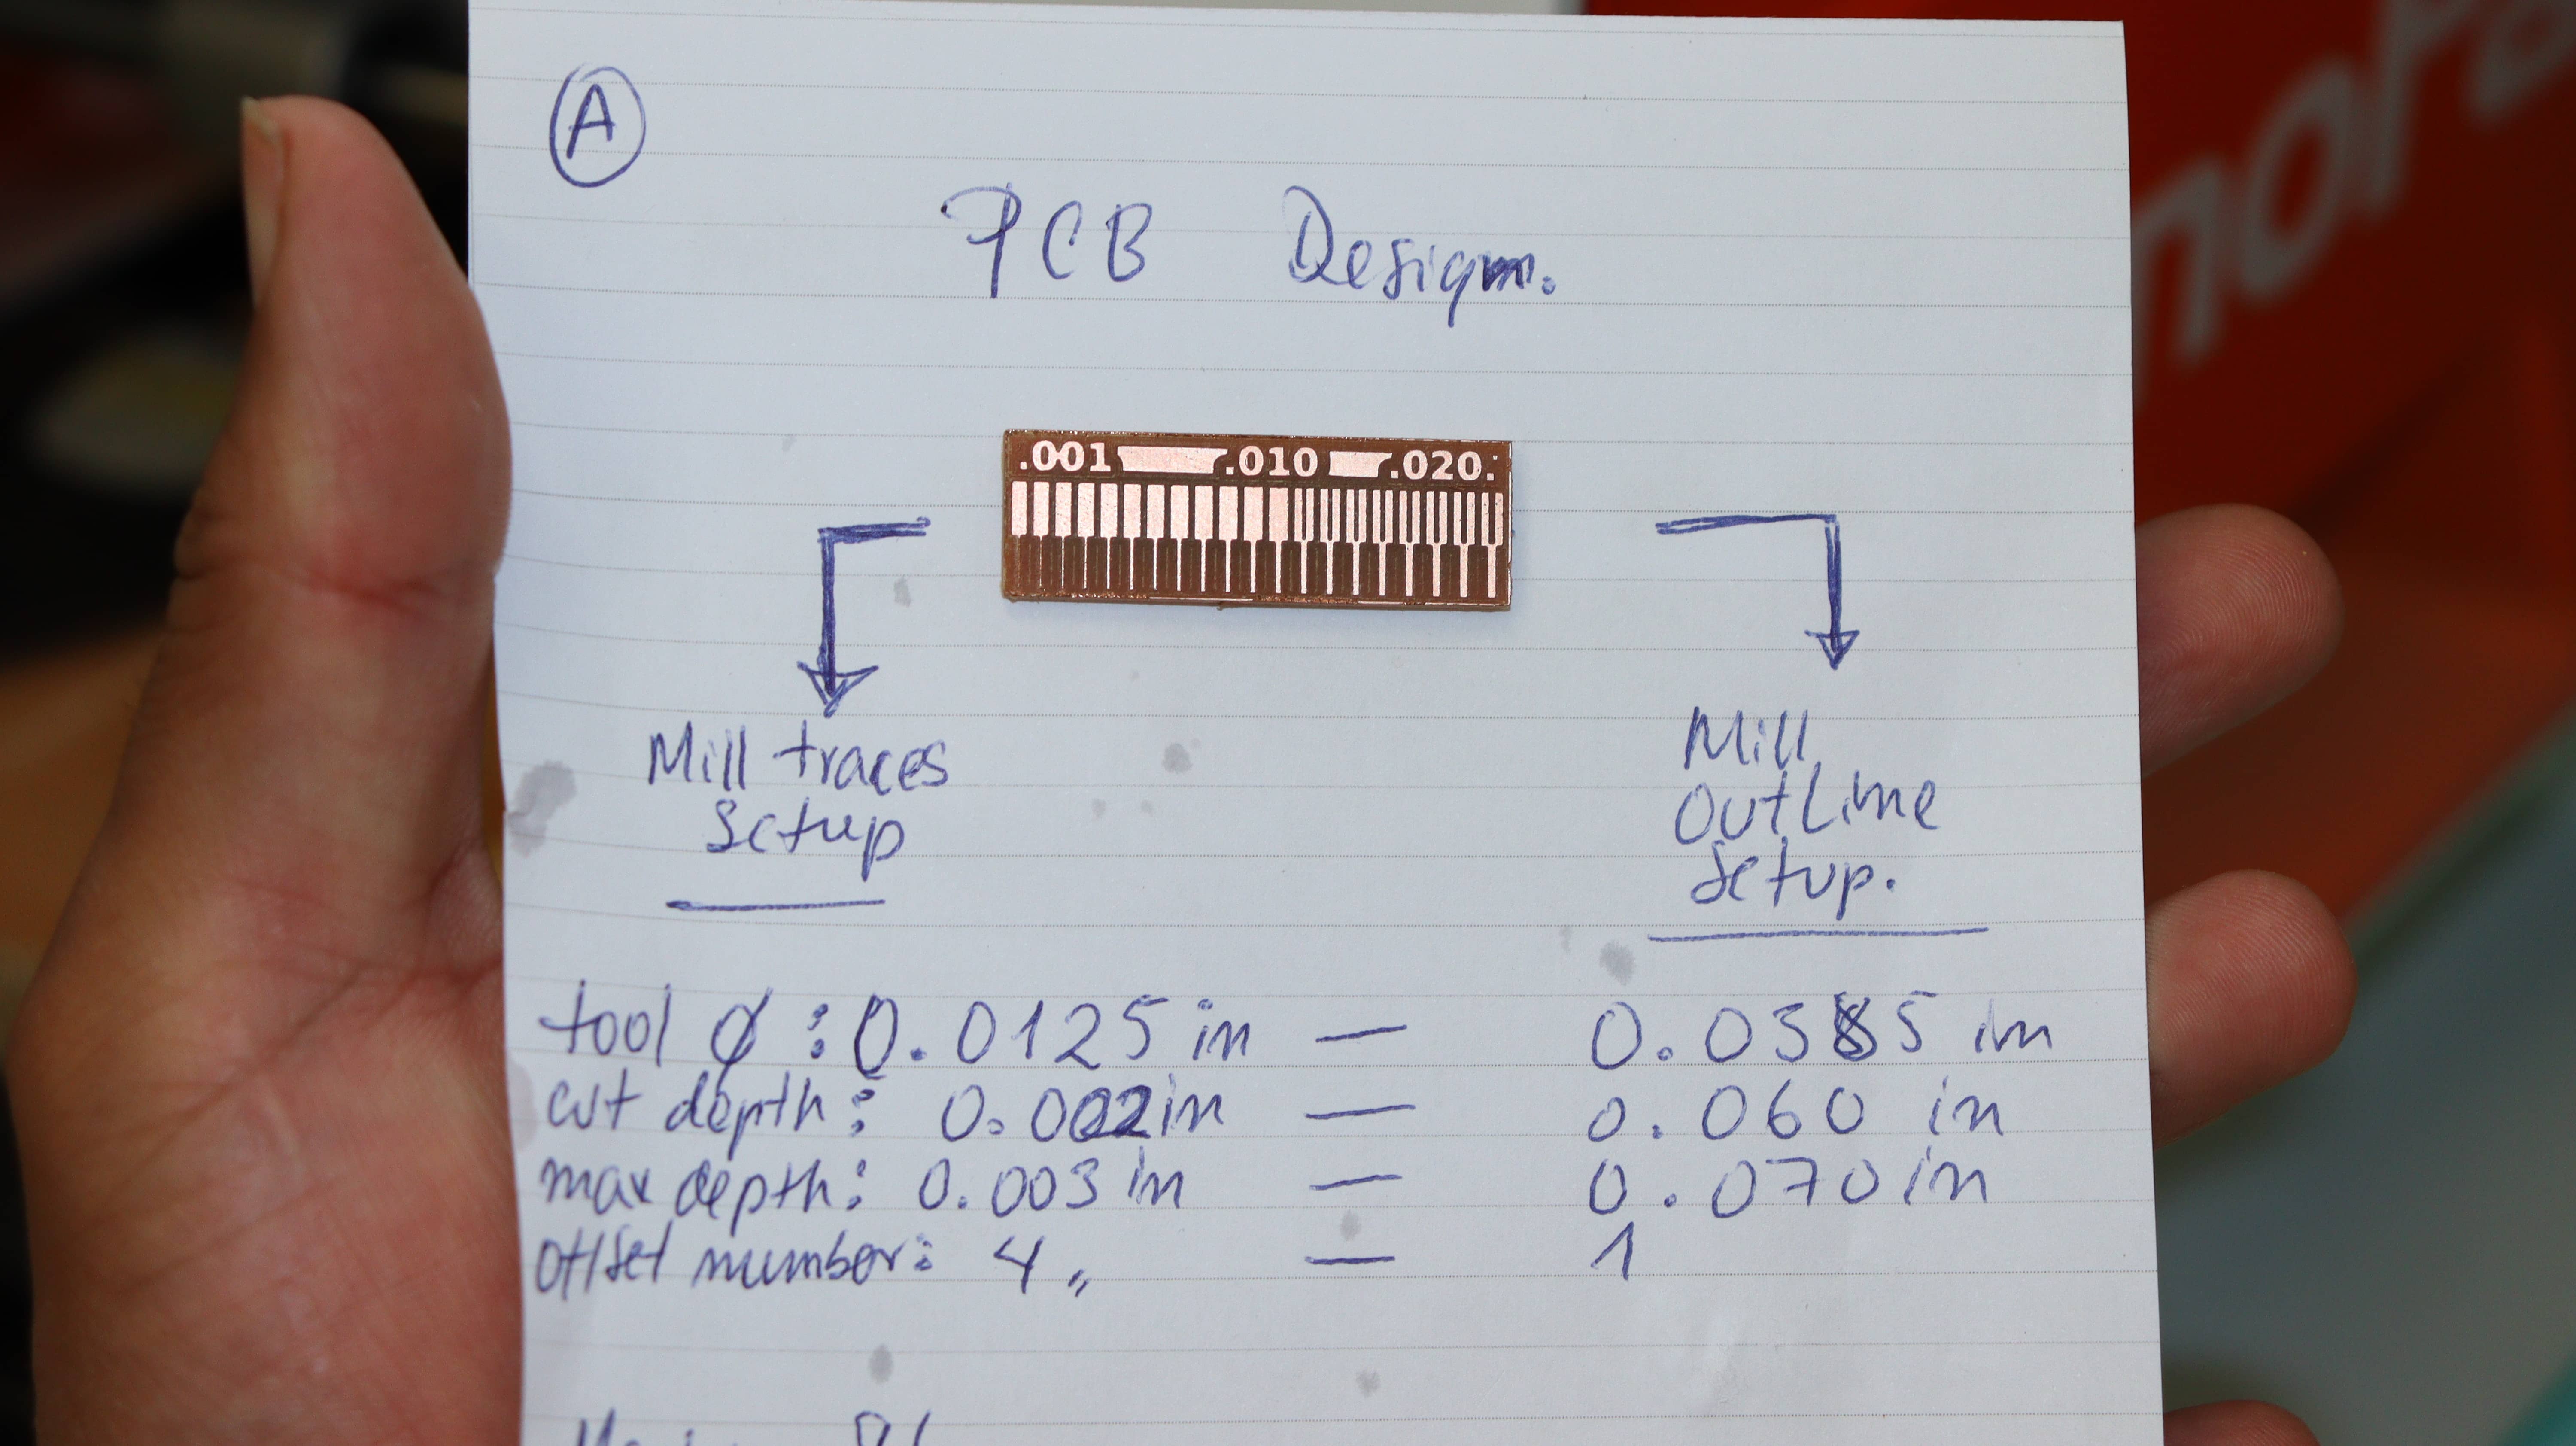 A
PCB Design.
.001 .010 .020.
Mill traces
Setup
Mill
OutLine
Setup.
tool Ø : 0.0125 in — in
cut depth: 0.002 in — 0.060 in
max depth: 0.003 in — 0.070 in
Offset number: 4 — 1